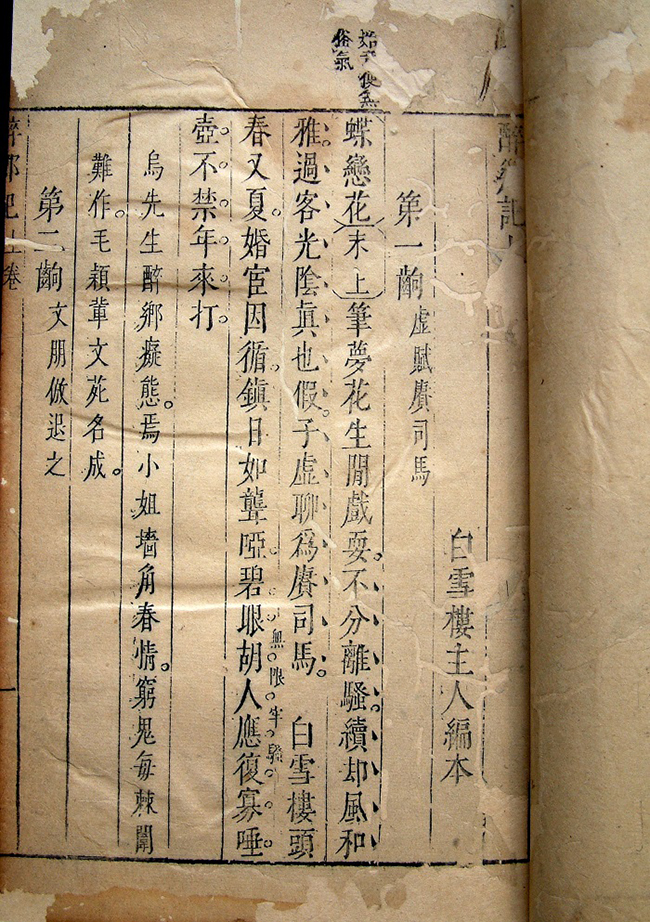 便無
俗氣
醉鄉記上
白雪樓主人編本
第一齣 虛賦贋司馬
蝶戀花 末上 筆夢花生閒戲耍。不分離騷。續却風和
雅過客光陰眞也假。子虛聊爲贋司馬。 白雪樓頭
無限牢騷
春又夏。婚宦因循。鎮日如聾啞碧眼胡人應復寡唾
壺不禁年來打。
烏先生醉鄉癡態。焉小姐墻角春情。窮鬼每棘闈
難作。毛穎輩文苑名成。
第二齣 文朋倣退之
醉鄉記 上卷